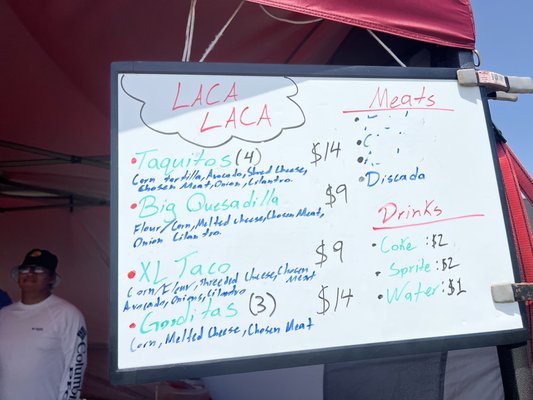 LACA
LACA
• Taquitos (4) $14
Corn tortilla, Avocado, Shred Cheese,
Chosen Meat, Onion, Cilantro.
• Big Quesadilla $9
Flour/Corn, Melted Cheese, Chosen Meat,
Onion Cilantro.
• XL Taco $9
Corn/Flour, Shredded Cheese, Chosen Meat
Avocado, Onions, Cilantro
• Gorditas (3) $14
Corn, Melted Cheese, Chosen Meat
Meats
• Discada
Drinks
• Coke : $2
• Sprite : $2
• Water : $1
Columbia